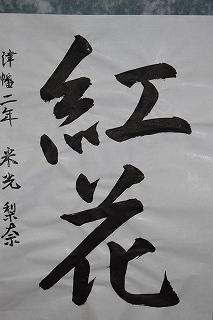 紅花
津幡二年 米光 梨奈